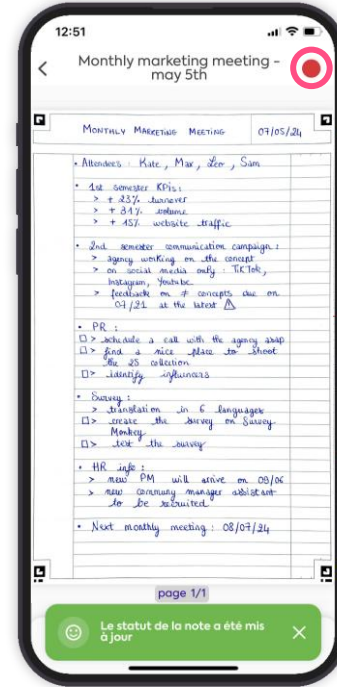 12:51
Monthly marketing meeting -
may 5th
MONTHLY MARKETING MEETING 07/05/24
• Attendees : Kate, Max, Leo, Sam
• 1st semester KPIs :
> + 23% turnover
> + 31% volume
> + 15% website traffic
• 2nd semester communication campaign :
> agency working on the concept
> on social media only : TikTok,
Instagram, Youtube.
> feedback on ≠ concepts due on
07/21 at the latest ⚠
• PR :
□> schedule a call with the agency asap
□> find a nice place to shoot
the 25 collection
□> identify influencers
• Survey :
> translation in 6 languages
□> create the survey on Survey
Monkey
□> test the survey
• HR info :
> new PM will arrive on 09/06
> new community manager assistant
to be recruited
• Next monthly meeting : 08/07/24
page 1/1
Le statut de la note a été mis
à jour